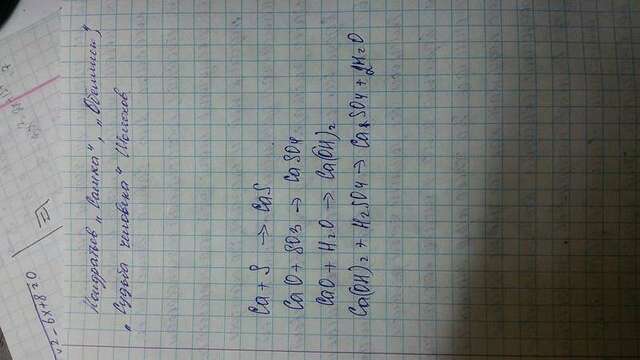 x²-6x+8=0
Кондратьев „Сашка“, „Обелиск“,
„Судьба человека“ Шолохов
Ca + S → CaS
CaO + SO3 → CaSO4
CaO + H2O → Ca(OH)2
Ca(OH)2 + H2SO4 → CaSO4 + 2H2O